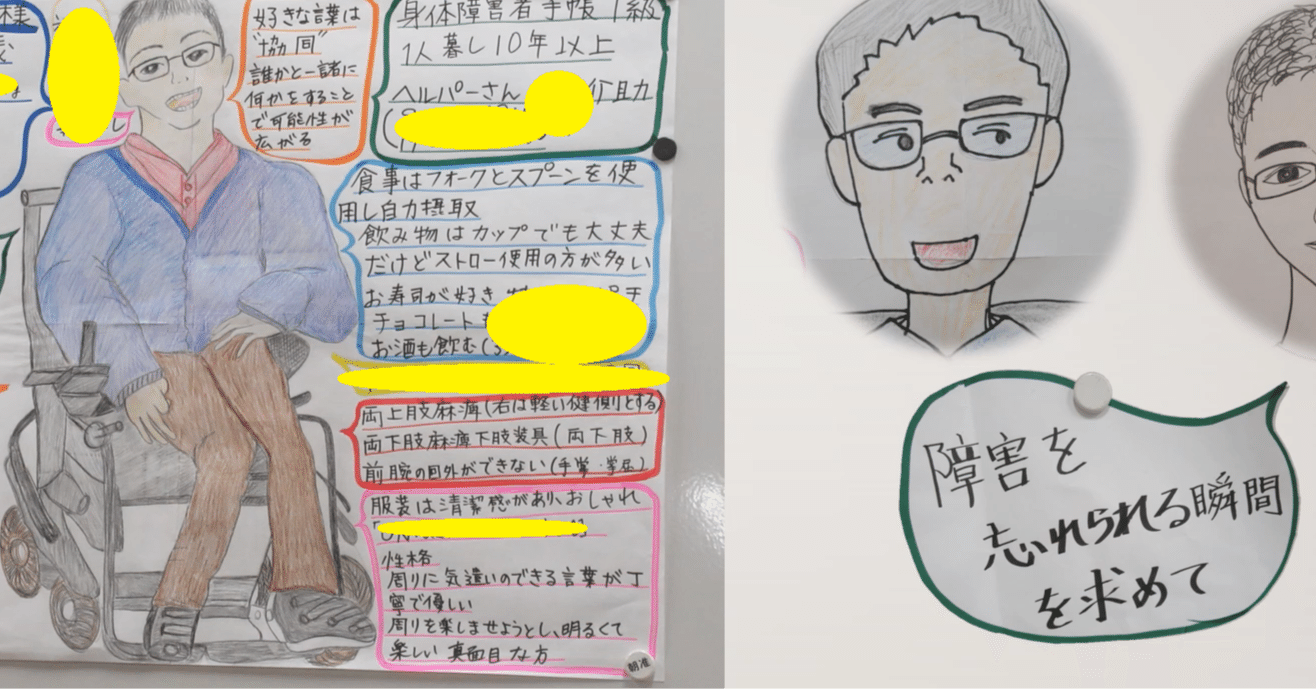 様
し
好きな言葉は
"協同"
誰かと一緒に
何かをすること
で可能性が
広がる
身体障害者手帳1級
1人暮し10年以上
ヘルパーさん
食事はフォークとスプーンを使
用し自力摂取
飲み物はカップでも大丈夫
だけどストロー使用の方が多い
お寿司が好き
チョコレート
お酒も飲む(
両上肢麻痺(右は軽い健側とする)
両下肢麻痺下肢装具(両下肢)
前腕の回外ができない(手掌・掌屈)
服装は清潔感があり、おしゃれ
性格
周りに気遣いのできる言葉が丁
寧で優しい
周りを楽しませようとし、明るくて
楽しい真面目な方
障害を
忘れられる瞬間
を求めて